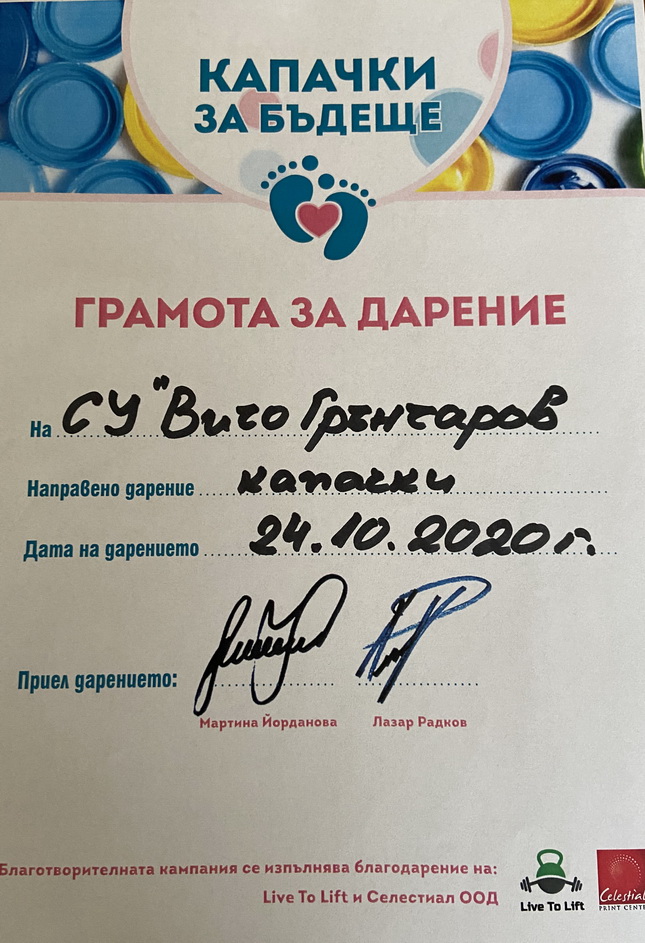 КАПАЧКИ
ЗА БЪДЕЩЕ
ГРАМОТА ЗА ДАРЕНИЕ
На СУ "Вичо Грънчаров
Направено дарение капачки
Дата на дарението 24.10.2020 г.
Приел дарението:
Мартина Йорданова Лазар Радков
Благотворителната кампания се изпълнява благодарение на:
Live To Lift и Селестиал ООД
Live To Lift
Celestial
PRINT CENTE